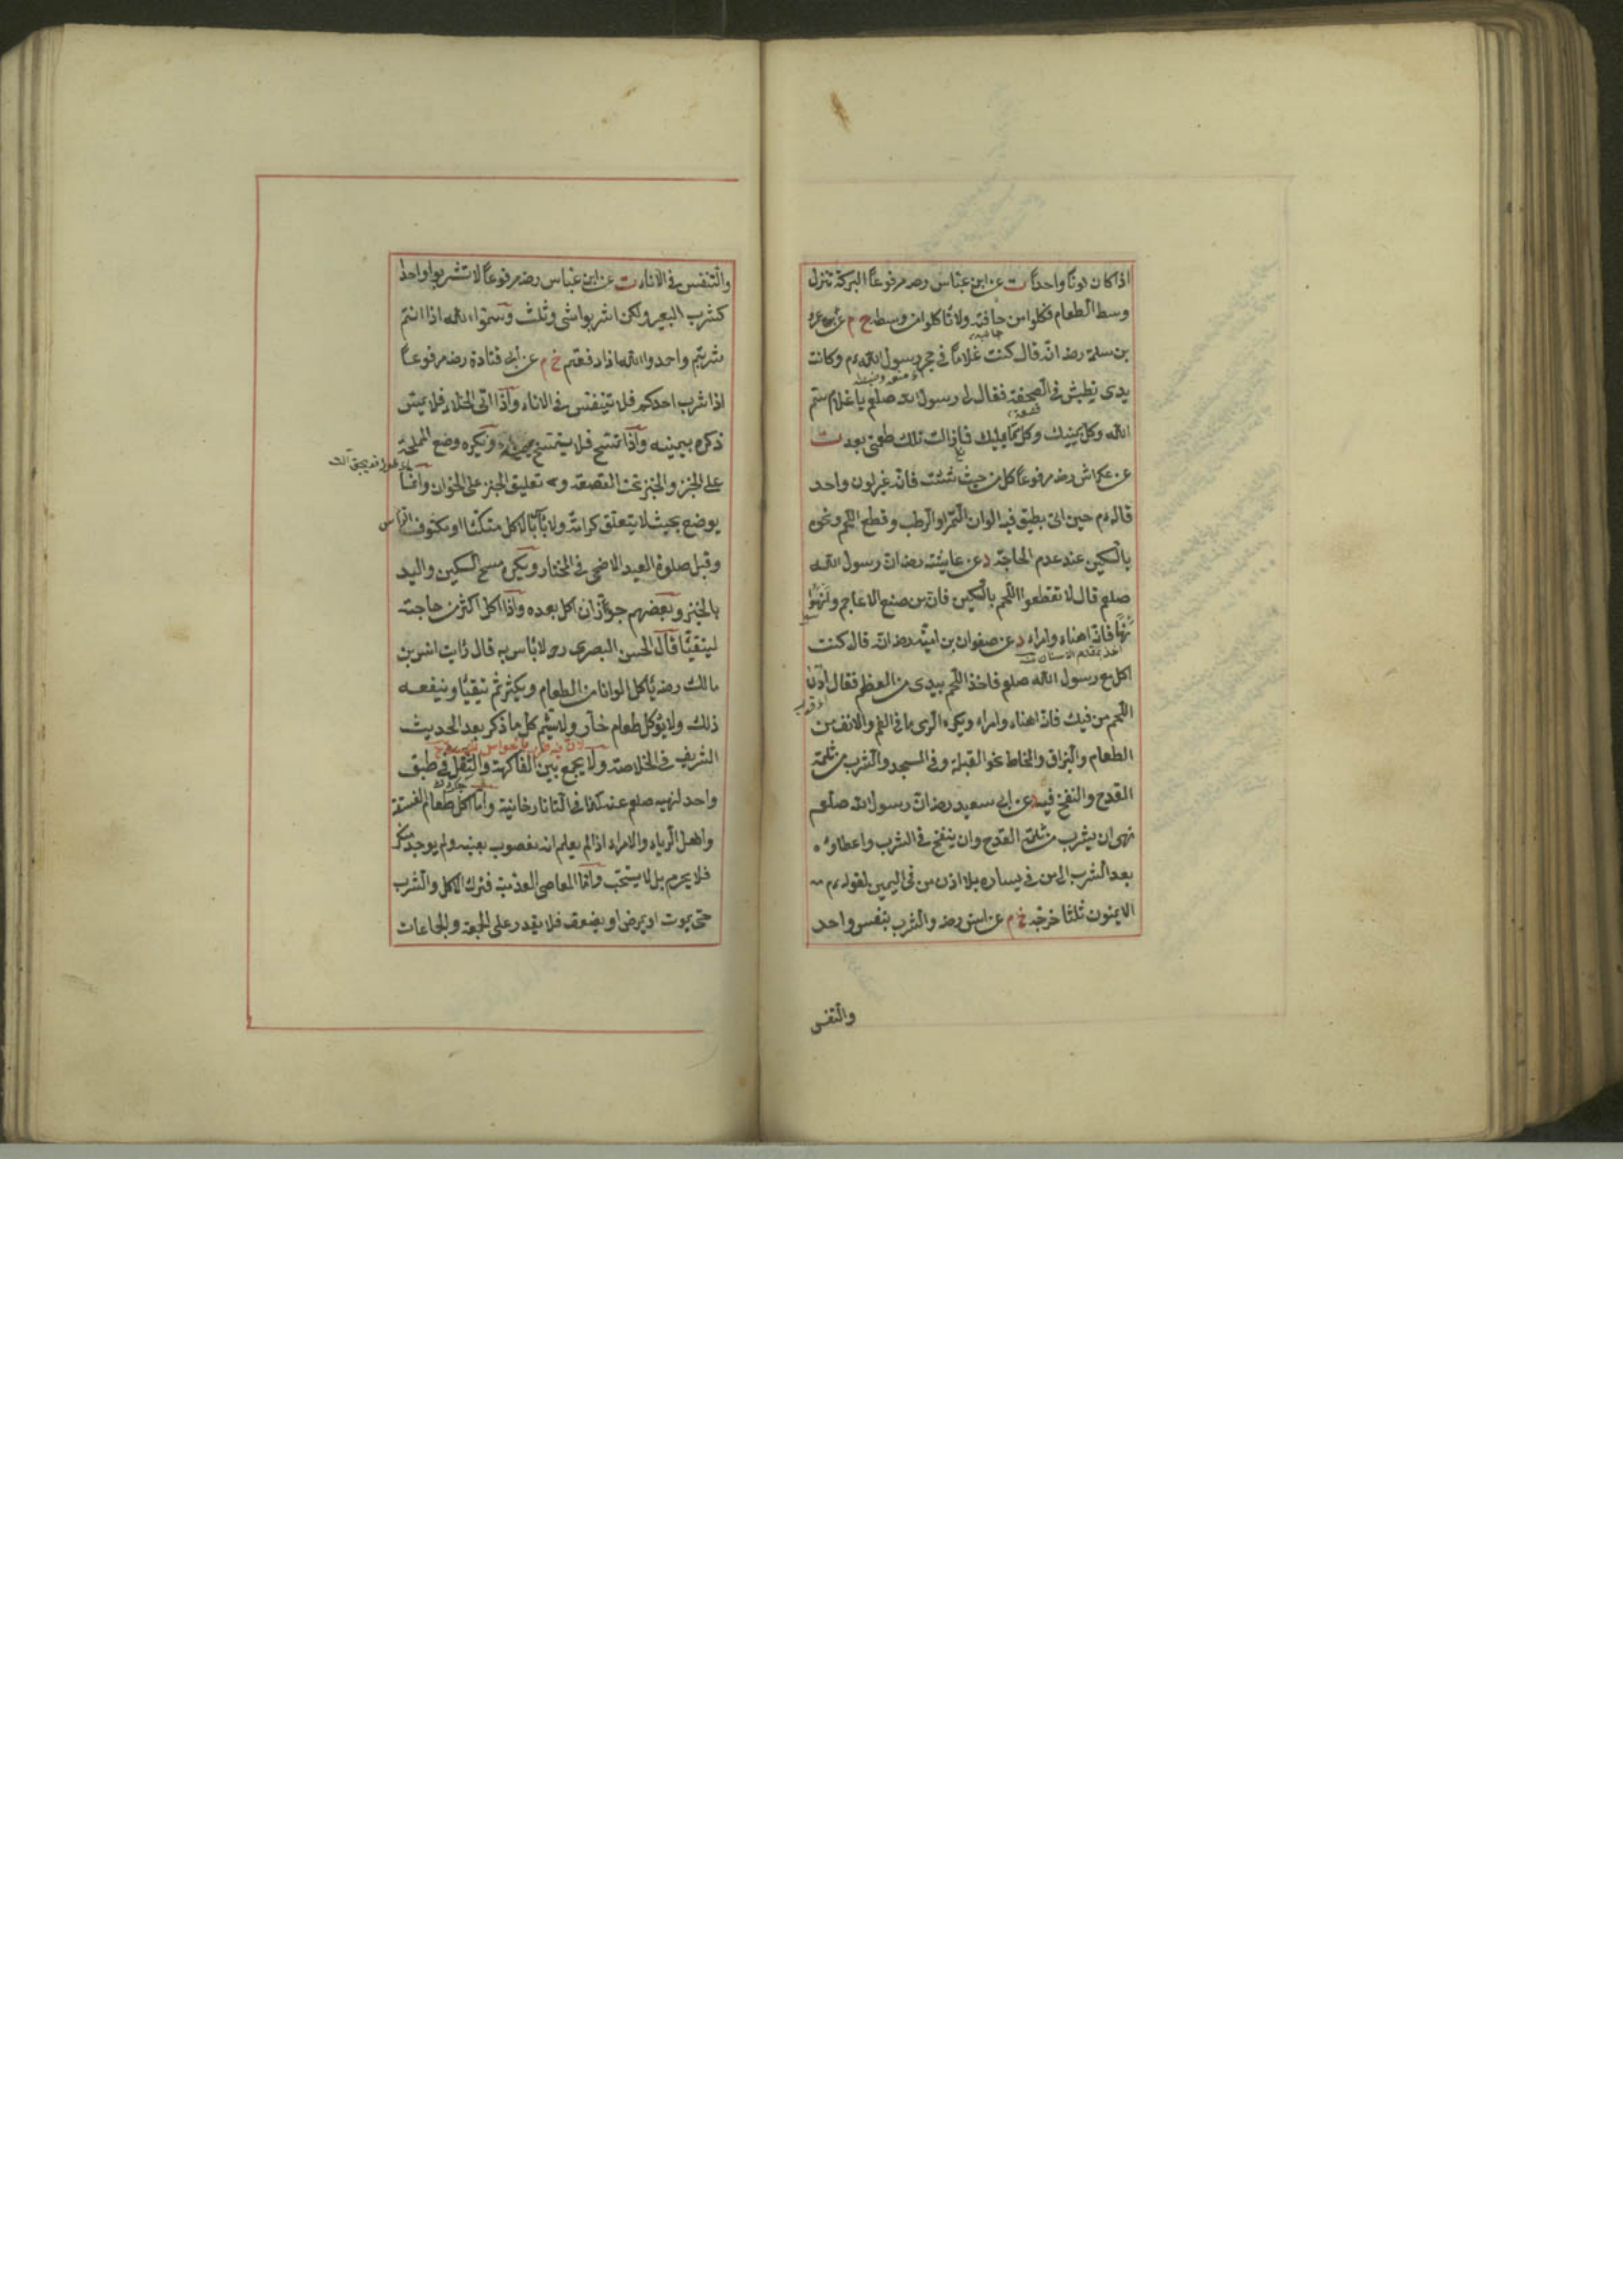 اذا كان لونا واحدا ت عن ابن عباس رضه مرفوعا البركة تنزل
وسط الطعام فكلوا من حافته ولا تأكلوا من وسطه خ م عن عمر
جانبه
بن سلمة رضه انه قال كنت غلاما في حجر رسول الله م وكانت
يدى تطيش في الصحفة فقال لى رسول الله صلعم يا غلام سم
قصعة
الله وكل بيمينك وكل مما يليك فما زالت تلك طعمتى بعد ت
عن عكراش رضه مرفوعا كل من حيث شئت فانه غير لون واحد
قاله م حين اتى بطبق فيه الوان التمر او الرطب وقطع اللحم ونحوه
بالسكين عند عدم الحاجة د عن عايشة رضه ان رسول الله
صلعم قال لا تقطعوا اللحم بالسكين فانه من صنع الاعاجم وانهسوا
نهسا فانه اهناء وامراء د عن صفوان بن امية رضه انه قال كنت
اخذ بمقدم الاسنان
اكل مع رسول الله صلعم فاخذ اللحم بيدى من العظم فقال ادن
اى قرب
اللحم من فيك فانه اهناء وامراء ويكره الرمى ما في الفم والانف من
الطعام والبزاق والمخاط نحو القبلة وفى المسجد والشرب من ثلمة
القدح والنفخ فيه د عن ابى سعيد رضه ان رسول الله صلعم
نهى ان يشرب من ثلمة القدح وان ينفخ في الشرب واعطاؤه
بعد الشرب الى من في يساره بلا اذن من فى اليمين لقوله م
الايمنون ثلثا خرجه خ م عن انس رضه والشرب بنفس واحد
والتنفس
والتنفس في الاناء ت عن ابن عباس رضه مرفوعا لا تشربوا واحدا
كشرب البعير ولكن اشربوا مثنى وثلث وسموا الله اذا انتم
شربتم واحمدوا الله اذا رفعتم خ م عن ابى قتادة رضه مرفوعا
اذا شرب احدكم فلا يتنفس في الاناء واذا اتى الخلاء فلا يمس
ذكره بيمينه واذا تمسح فلا يتمسح بيمينه ويكره وضع المملحة
على الخبز والخبز تحت القصعة و تعليق الخبز على الخوان وانما
يوضع بحيث لا يتعلق كرامة ولا بأس بالاكل متكئا او مكشوف الرأس
وقبل صلوة العيد الاضحى في المختار ويكره مسح السكين واليد
بالخبز وبعضهم جوز ان اكل بعده واذا اكل اكثر من حاجته
ليتقيأ قال الحسن البصرى رح لا بأس به قال رأيت انس بن
مالك رضه يأكل الوانا من الطعام ويكثر ثم يتقيأ وينفعه
ذلك ولا يؤكل طعام حار ولا يشم كل ما ذكر بعد الحديث
الشريف في الخلاصة ولا يجمع بين الفاكهة والثفل في طبق
واحد لنهيه صلعم عنه كذا في التاتارخانية واما اكل طعام الفسقة
واهل الرياء والامراء اذا لم يعلم انه مغصوب بعينه ولم يوجد منكر
فلا يحرم بل لا يستحب واما المعاصى العدمية فترك الاكل والشرب
حتى يموت او يمرض او يضعف فلا يقدر على الجمعة والجماعات